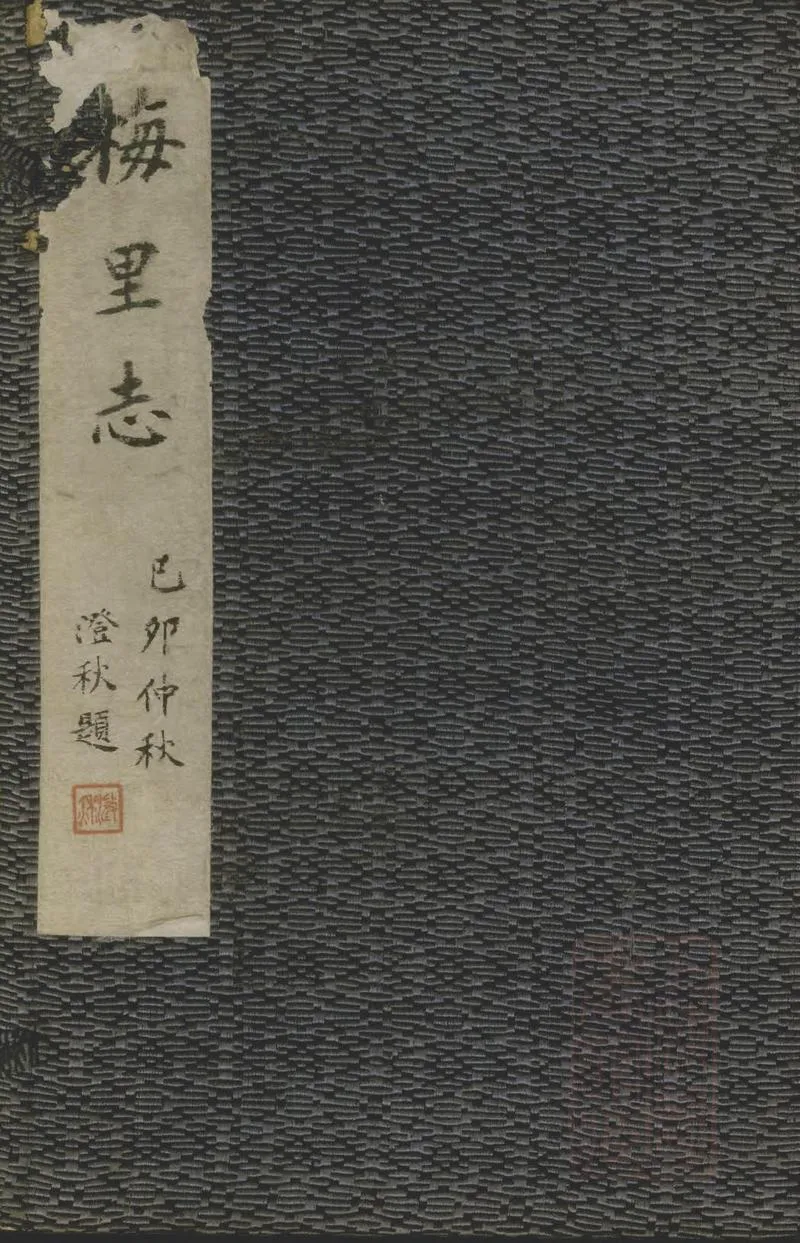 梅里志
己卯仲秋
澄秋題